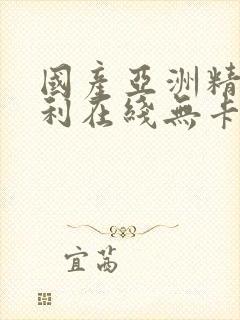 國產亞洲精
利在綫無卡
宜芮